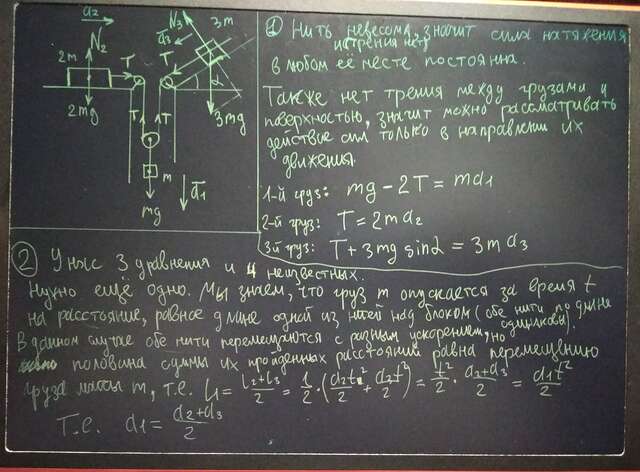 a₂
N₂
2m
T
2mg
T
T
m
mg
a₁
N₃
3m
a₃
T
α
3mg
① Нить невесома, значит сила натяжения
и трения нет
в любом её месте постоянна.
Также нет трения между грузами и
поверхностью, значит можно рассматривать
действие сил только в направлении их
движения.
1-й груз: mg - 2T = ma₁
2-й груз: T = 2ma₂
3й груз: T + 3mg sinα = 3ma₃
② У нас 3 уравнения и 4 неизвестных.
Нужно еще одно. Мы знаем, что груз m опускается за время t
на расстояние, равное длине одной из нитей над блоком (обе нити по длине
одинаковы).
В данном случае обе нити перемещаются с разным ускорением, но
половина суммы их пройденных расстояний равна перемещению
груза массы m, т.е. l₁ = (l₂+l₃)/2 = 1/2 · (a₂t²/2 + a₃t²/2) = t²/2 · (a₂+a₃)/2 = a₁t²/2
Т.е. a₁ = (a₂+a₃)/2